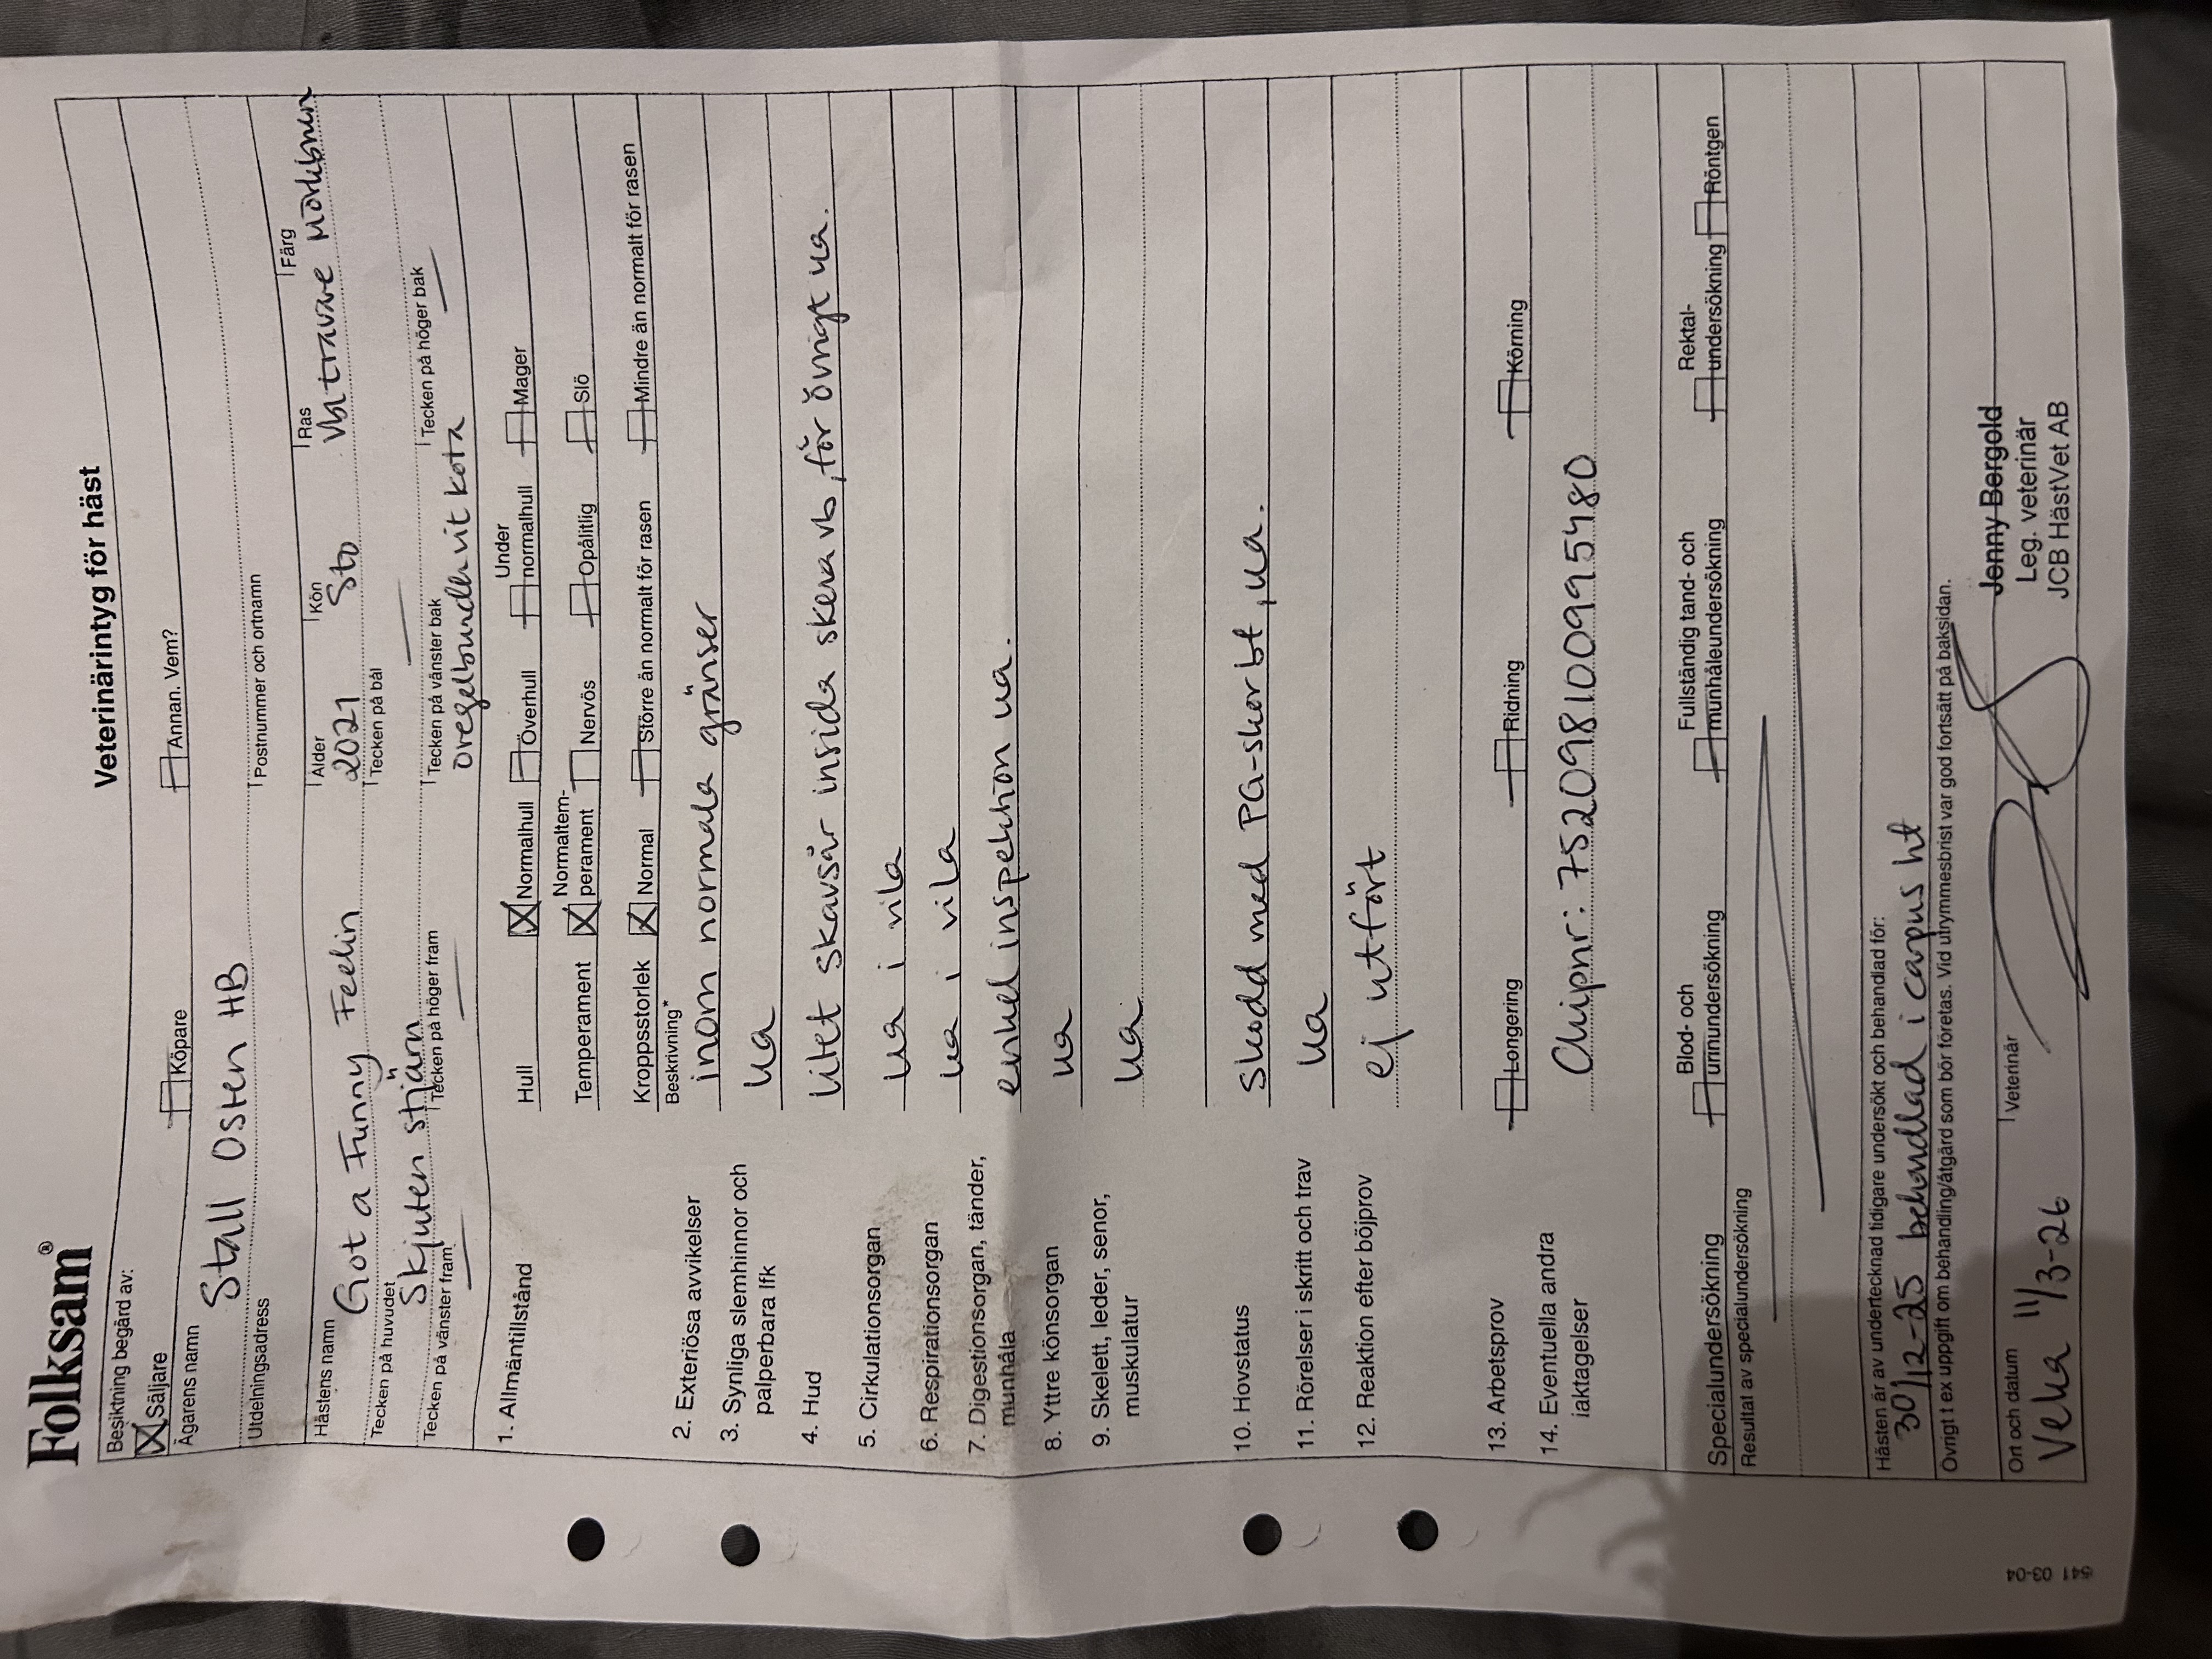 Folksam®
Veterinärintyg för häst
Besiktning begärd av:
Säljare Köpare Annan. Vem?
Ägarens namn
Stall Osten HB
Utdelningsadress Postnummer och ortnamn
Hästens namn Ålder Kön Ras Färg
Got a Funny Feelin 2021 Sto Vbl travare Mörkbrun
Tecken på huvudet Tecken på bål
Skjuten stjärn
Tecken på vänster fram Tecken på höger fram Tecken på vänster bak Tecken på höger bak
oregelbundh vit kota
1. Allmäntillstånd Hull Normalhull Överhull Under normalhull Mager
Temperament Normaltem-perament Nervös Opålitlig Slö
Kroppsstorlek Normal Större än normalt för rasen Mindre än normalt för rasen
Beskrivning*
2. Exteriösa avvikelser inom normala gränser
3. Synliga slemhinnor och ua
palperbara lfk
4. Hud Litet skavsår insida skena vb, för övrigt ua.
5. Cirkulationsorgan ua i vila
6. Respirationsorgan ua i vila
7. Digestionsorgan, tänder, enkel inspektion ua.
munhåla
8. Yttre könsorgan ua
9. Skelett, leder, senor, ua
muskulatur
10. Hovstatus Skodd med PG-skor bt, ua.
11. Rörelser i skritt och trav ua
12. Reaktion efter böjprov ej utfört
13. Arbetsprov Longering Ridning Körning
14. Eventuella andra Chipnr: 752098100995480
iaktagelser
Specialundersökning Blod- och urinundersökning Fullständig tand- och munhåleundersökning Rektal-undersökning Röntgen
Resultat av specialundersökning
Hästen är av undertecknad tidigare undersökt och behandlad för:
30/12-25 behandlad i carpus ht
Övrigt t ex uppgift om behandling/åtgärd som bör företas. Vid utrymmesbrist var god fortsätt på baksidan.
Ort och datum Veterinär
Veka 11/3-26
Jenny Bergold
Leg. veterinär
JCB HästVet AB
641 03-04